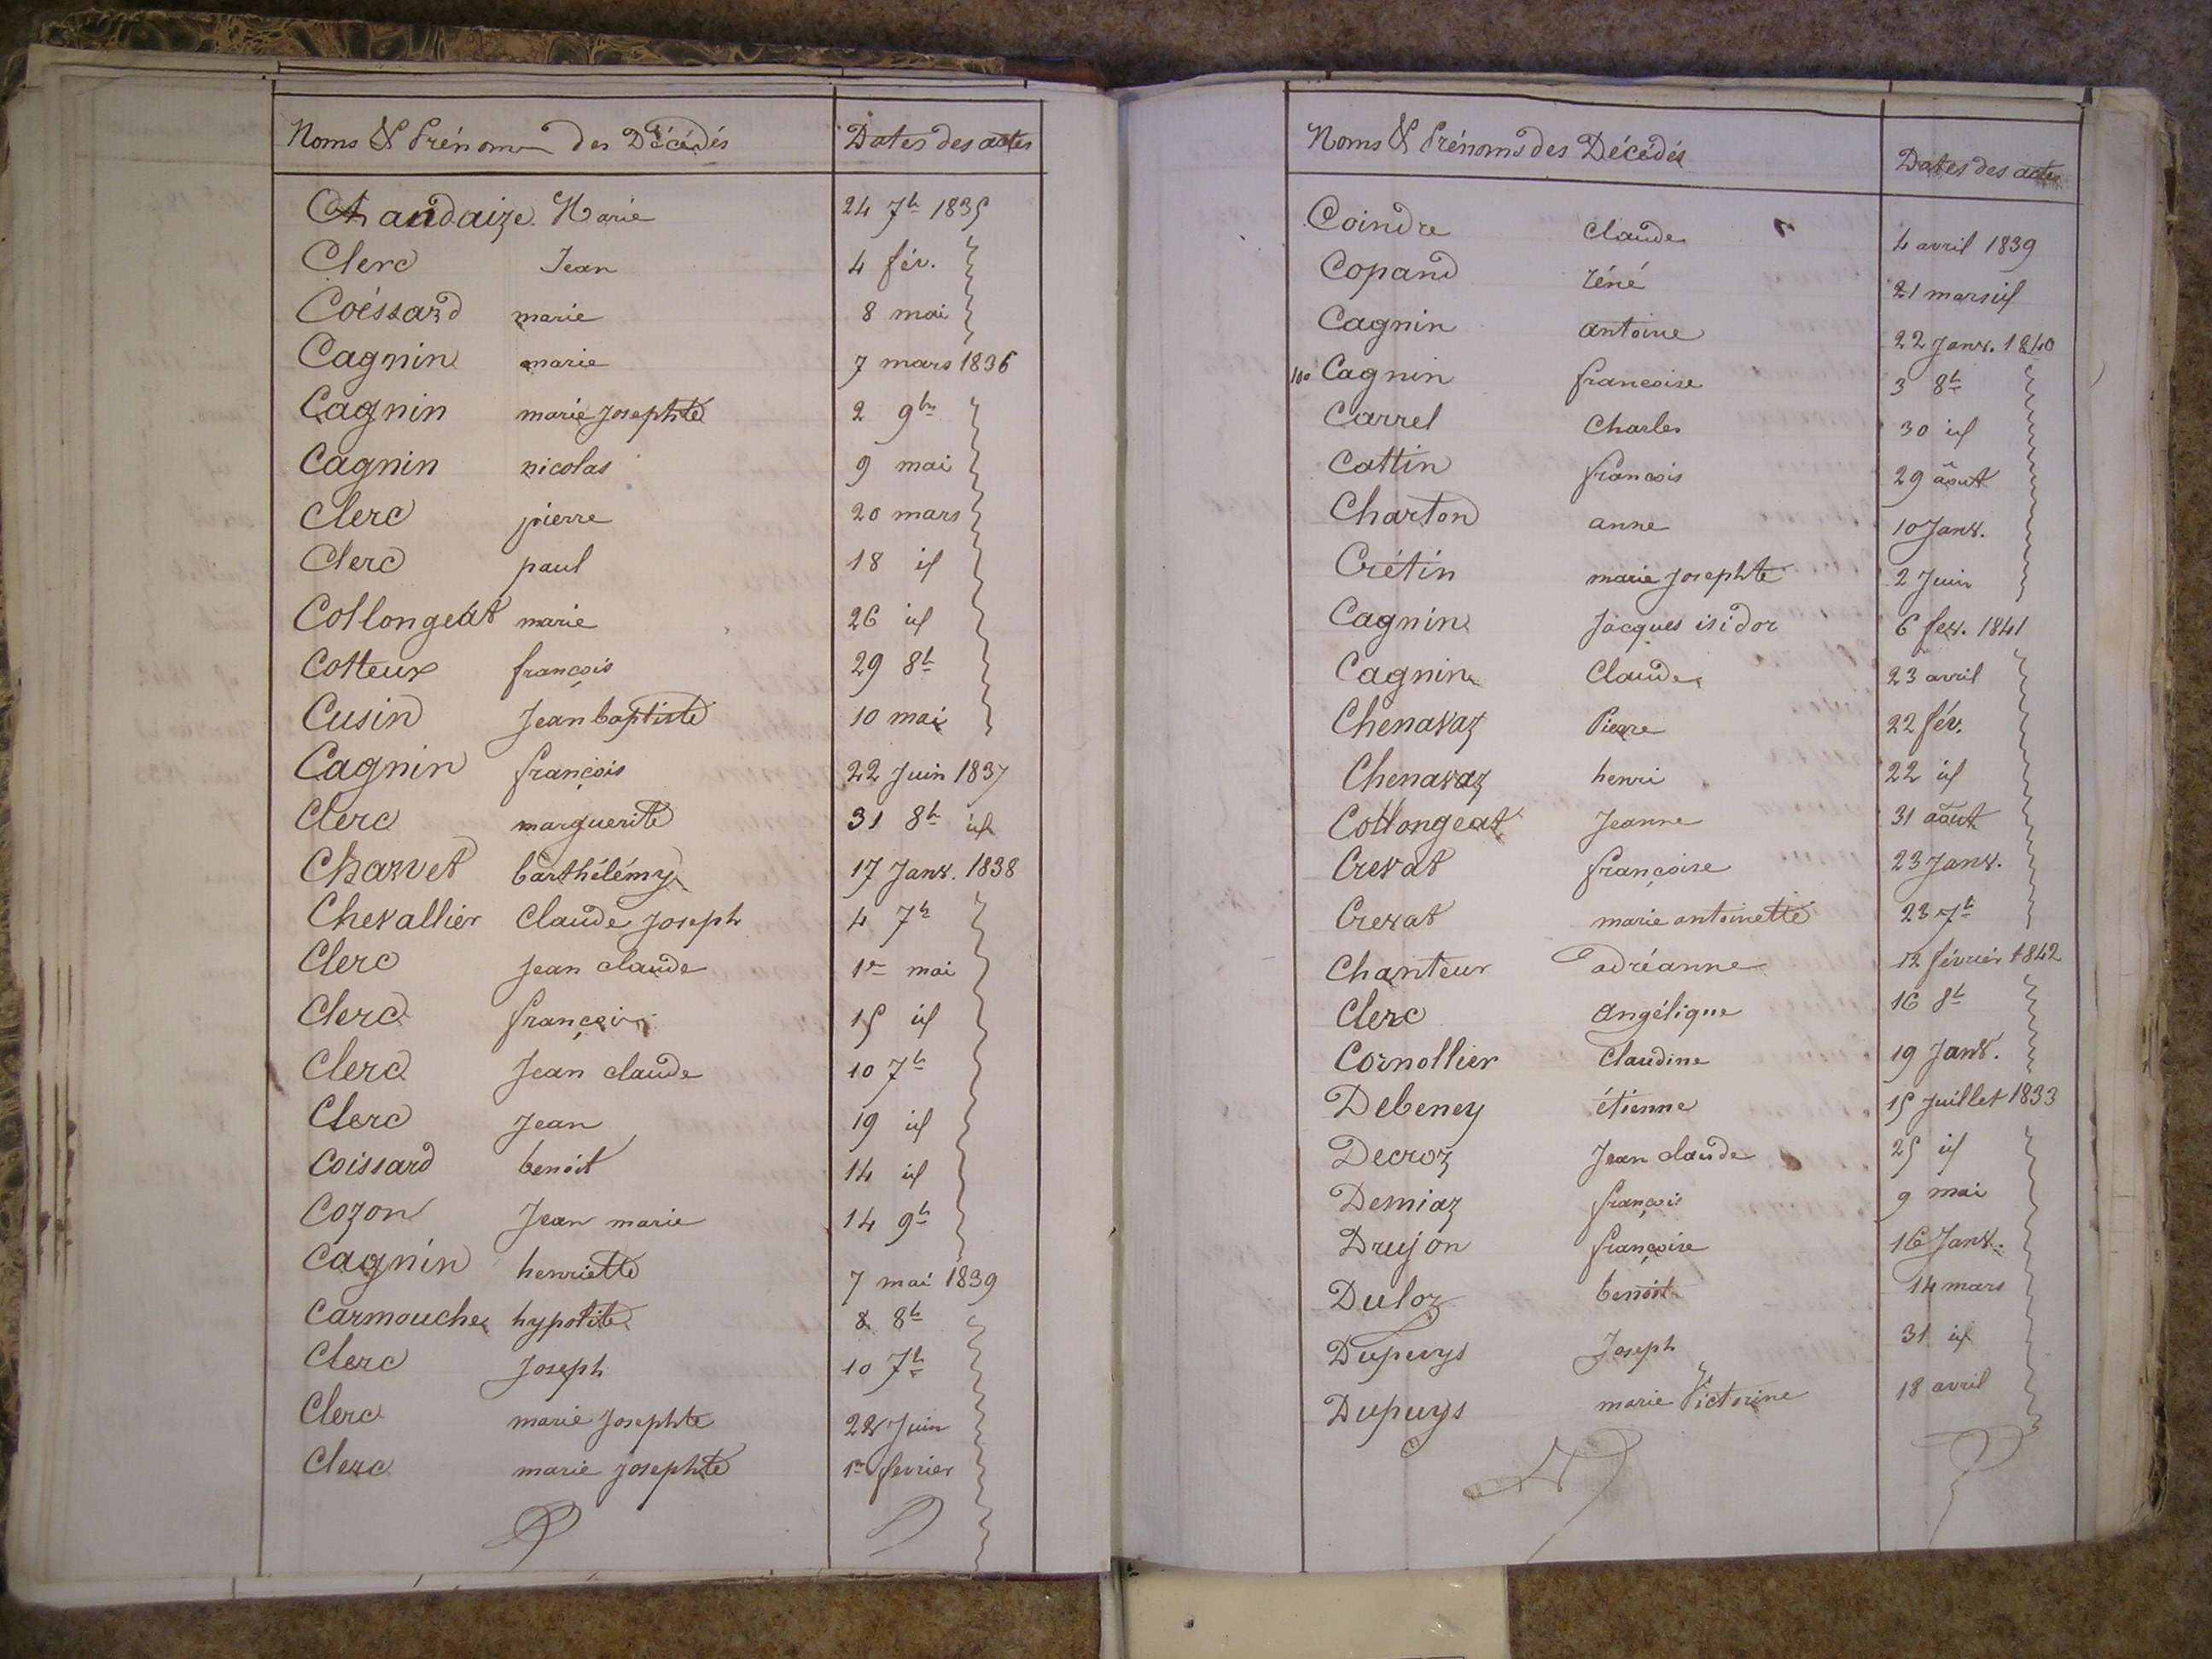 Noms & Prénoms des Décédés Dates des actes
Chandaize Marie 24 7b 1835
Clerc Jean 4 fév.
Coéssard marie 8 mai
Cagnin marie 7 mars 1836
Cagnin marie Josephte 2 9bre
Cagnin nicolas 9 mai
Clerc pierre 20 mars
Clerc paul 18 id
Collongeat marie 26 id
Cotteux françois 29 8b
Cusin Jean baptiste 10 mai
Cagnin françois 22 Juin 1837
Clerc marguerite 31 8b id
Charvet barthélémy 17 Janv. 1838
Chevallier Claude Joseph 4 7b
Clerc Jean claude 1er mai
Clerc françois 15 id
Clerc Jean claude 10 7b
Clerc Jean 19 id
Coissard benoit 14 id
Cozon Jean marie 14 9b
Cagnin henriette 7 mai 1839
Carmouche hypolite 8 8b
Clerc Joseph 10 7b
Clerc marie Josephte Juin
Clerc marie Josephte 1er fevrier
Noms & Prénoms des Décédés Dates des actes
Coindre Claude 4 avril 1839
Copand réné 21 mars id
Cagnin antoine 22 Janv. 1840
100 Cagnin francoise 3 8b
Carrel Charles 30 id
Cattin francois 29 âout
Charton anne 10 Janv.
Crétin marie Josephte 2 Juin
Cagnin Jacques isidor 6 fev. 1841
Cagnin Claude 23 avril
Chenavaz Pierre 22 fév.
Chenavaz henri 22 id
Collongeat Jeanne 31 août
Crevat françoise 23 Janv.
Crevat marie antoinette 23 7b
Chanteur adréanne 12 février 1842
Clerc Angélique 16 8b
Cornollier Claudine 19 Janv.
Debeney étienne 15 Juillet 1833
Decroz Jean claude 25 id
Demiaz françois 9 mai
Drujon françoise 16 Janv.
Duloz benoit 14 mars
Dupuys Joseph 31 id
Dupuys marie Victorine 18 avril